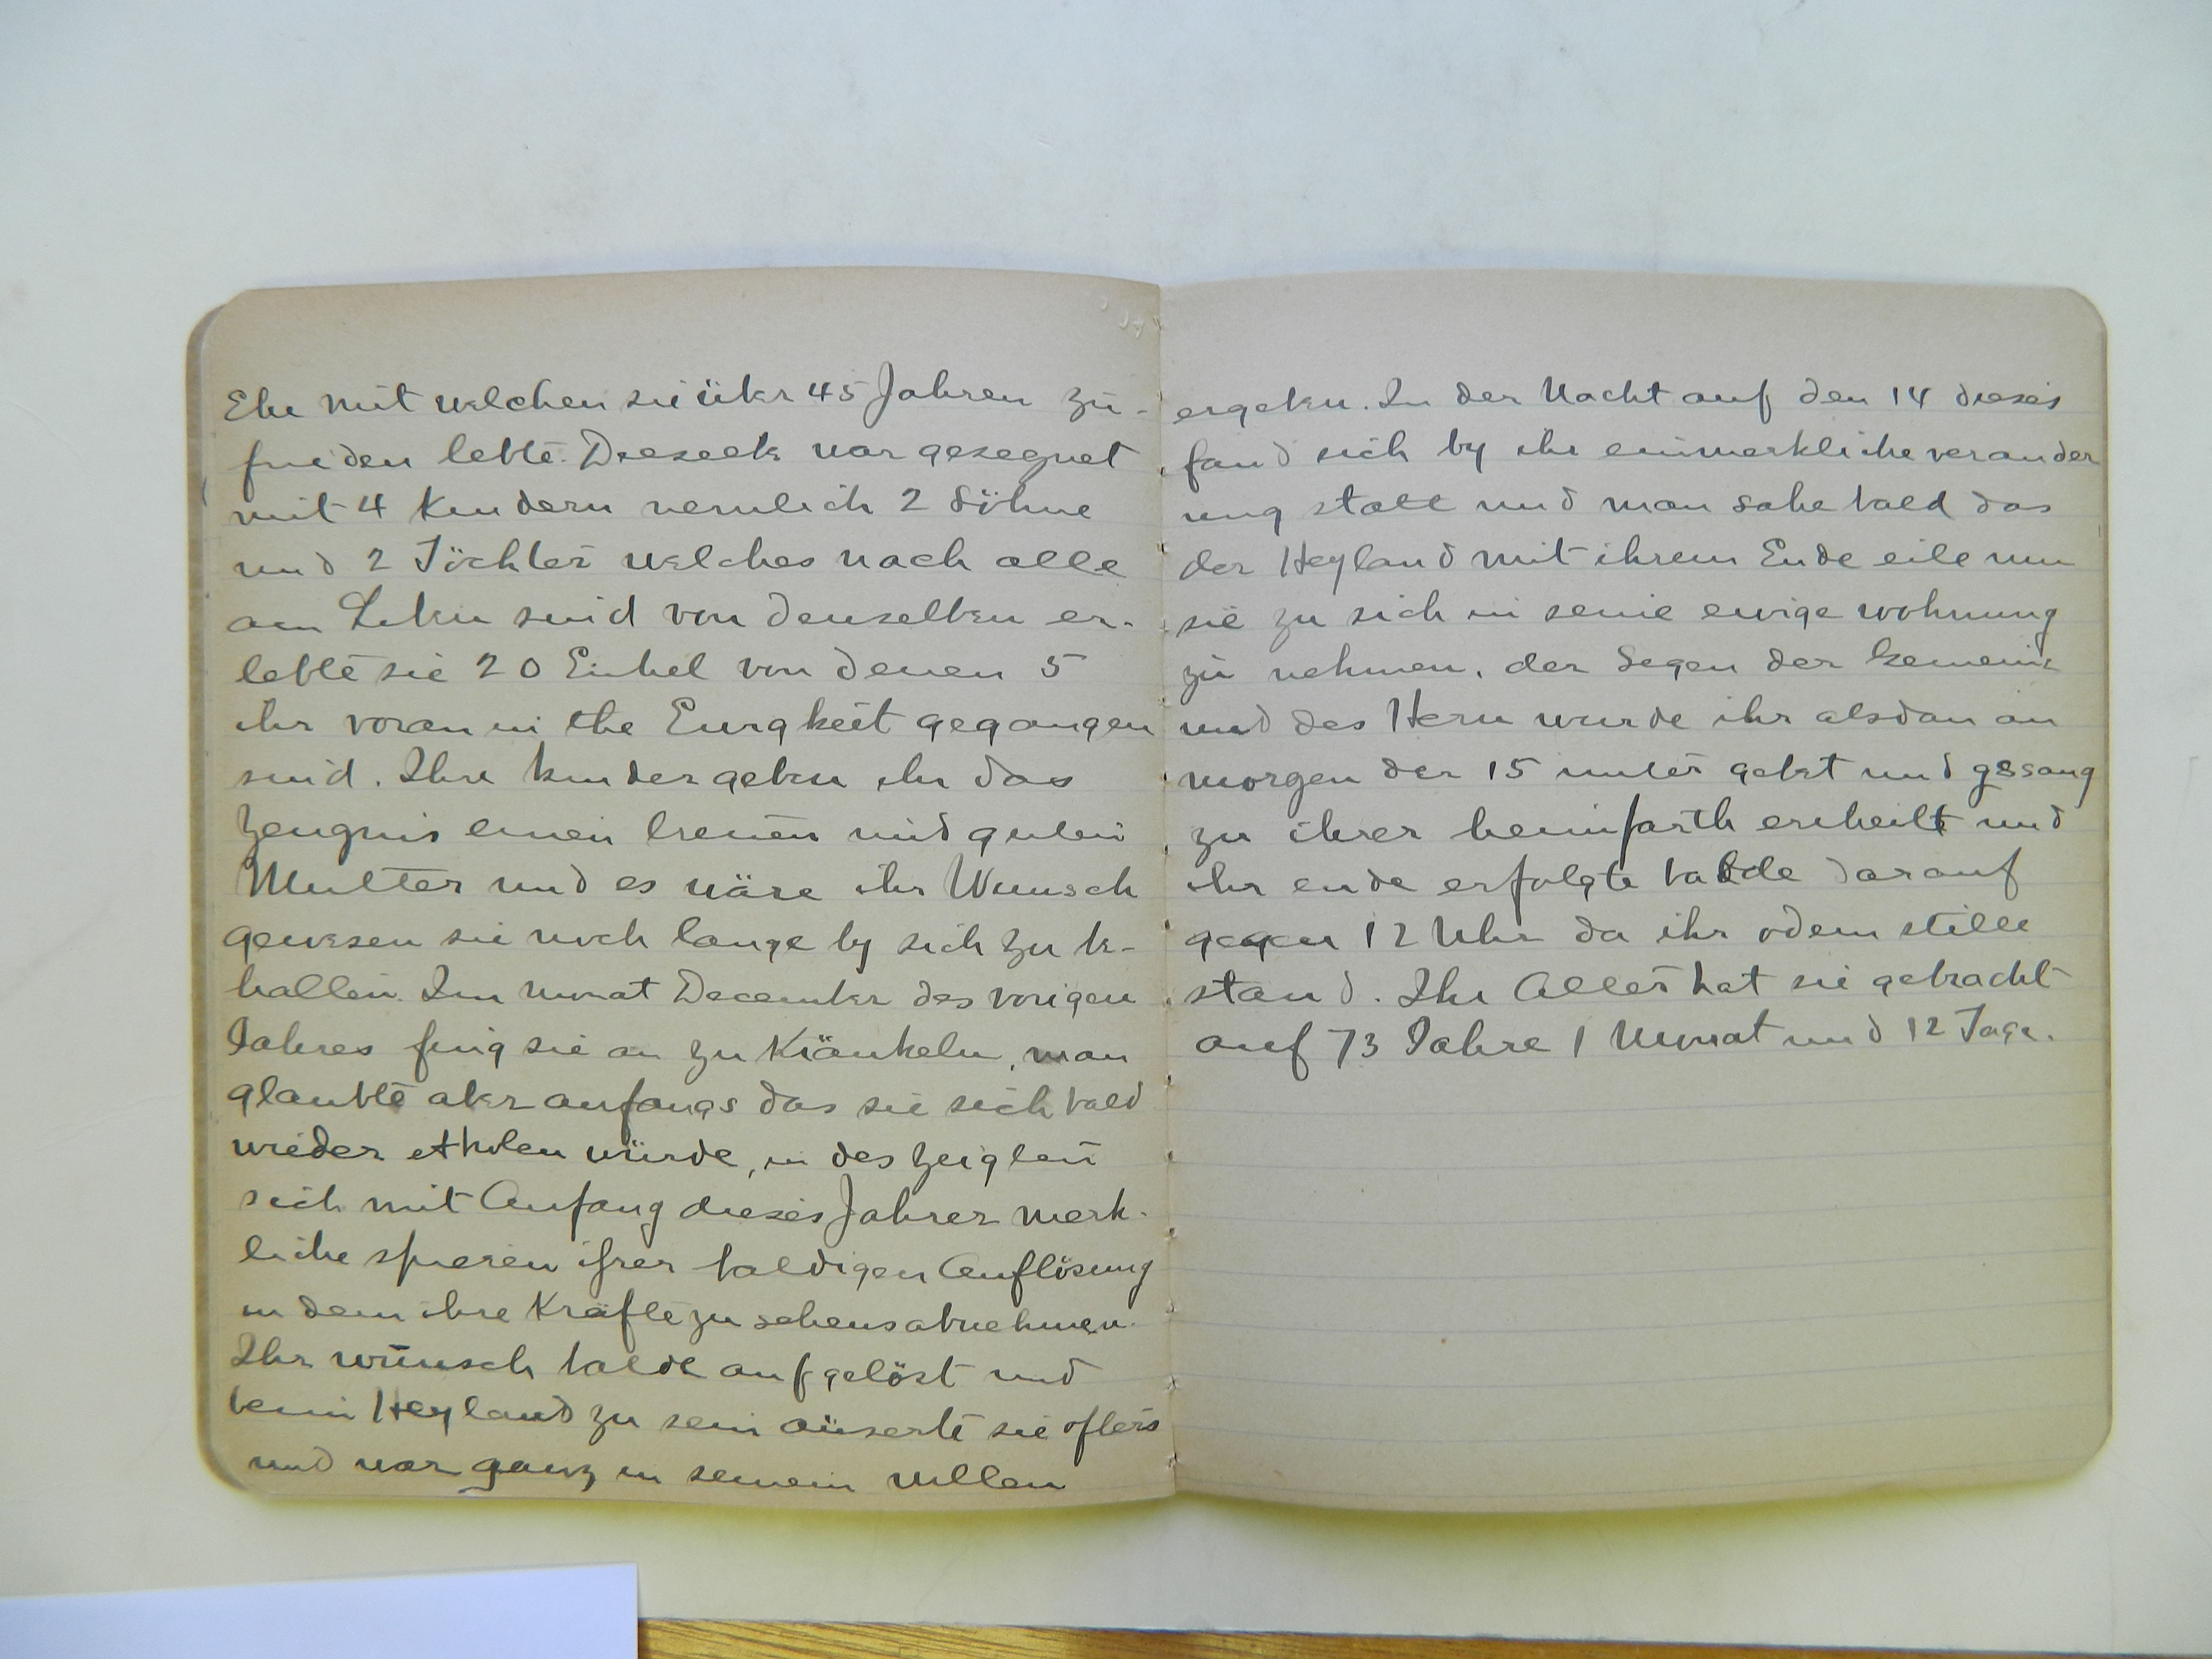 Ehe mit welchen sie über 45 Jahren zu-
frieden lebte. Dieseehe war gesegnet
mit 4 Kindern nemlich 2 Söhne
und 2 Töchter welches noch alle
am Leben sind von denselben er-
lebte sie 20 Enkel von denen 5
ihr voran in the Ewigkeit gegangen
sind. Ihre kinder geben ihr das
Zeugnis einen treuen und guten
Mutter und es wäre ihr Wunsch
gewesen sie noch lange by sich zu be-
halten. Im monat December des vorigen
Jahres fing sie an zu Kränkeln, man
glaubte aber anfangs das sie sich bald
wieder erholen würde, in des zeigten
sich mit Anfang dieses Jahrer merk-
liche spueren ihrer baldigen Auflösung
in dem ihre Kräfte zu sehens abnehmen.
Ihr wunsch balde aufgelöst und
beim Heyland zu sein äuserte sie ofters
und war ganz in seinem willen
ergeben. In der Nacht auf den 14 dieses
fand sich by ihr einmerkliche verander
ung statt und man sahe bald das
der Heyland mit ihrem Ende eile um
sie zu sich in seine ewige wohnung
zu nehmen, der Segen der Gemeine
und des Hern wurde ihr alsdan am
morgen der 15 unter gebet und gesang
zu ihrer heimfarth ertheilt und
ihr ende erfolgte balde darauf
gegen 12 Uhr da ihr odem stille
stand. Ihr Alter hat sie gebracht
auf 73 Jahre 1 Monat und 12 Tage.